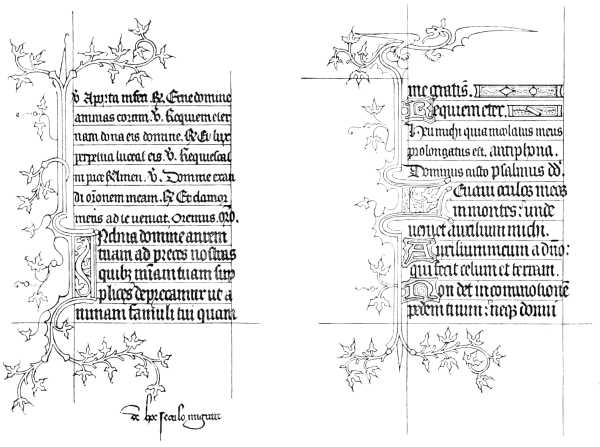 V̓ A porta inferi. R̓. Erue domine
animas eorum. V̓. Requiem eter
nam dona eis domine. R̓. Et lux
perpetua luceat eis. V̓. Requiescāt
in pace R̓ Amen. V̓. Domine exau
di orōnem meam. R̓ Et clamor
meus ad te veniat. Oremus. orō.
Inclina domine aurem
tuam ad preces nostras
quibꝫ mīam tuam sup
plices deprecamur ut a
nimam famuli tui quam
de hoc seculo migrare
me gratis̄.
Requiem eter.
Heu michi quia incolatus meus
prolongatus est. antiphona.
Dominus custo psalmus dd̄.
Leuaui oculos meos
in montes: unde
ueniet auxilium michi.
Auxilium meum a dn̄o:
qui fecit celum et terram.
Non det in comutionem̄
pedem tuum: neqꝫ dormi